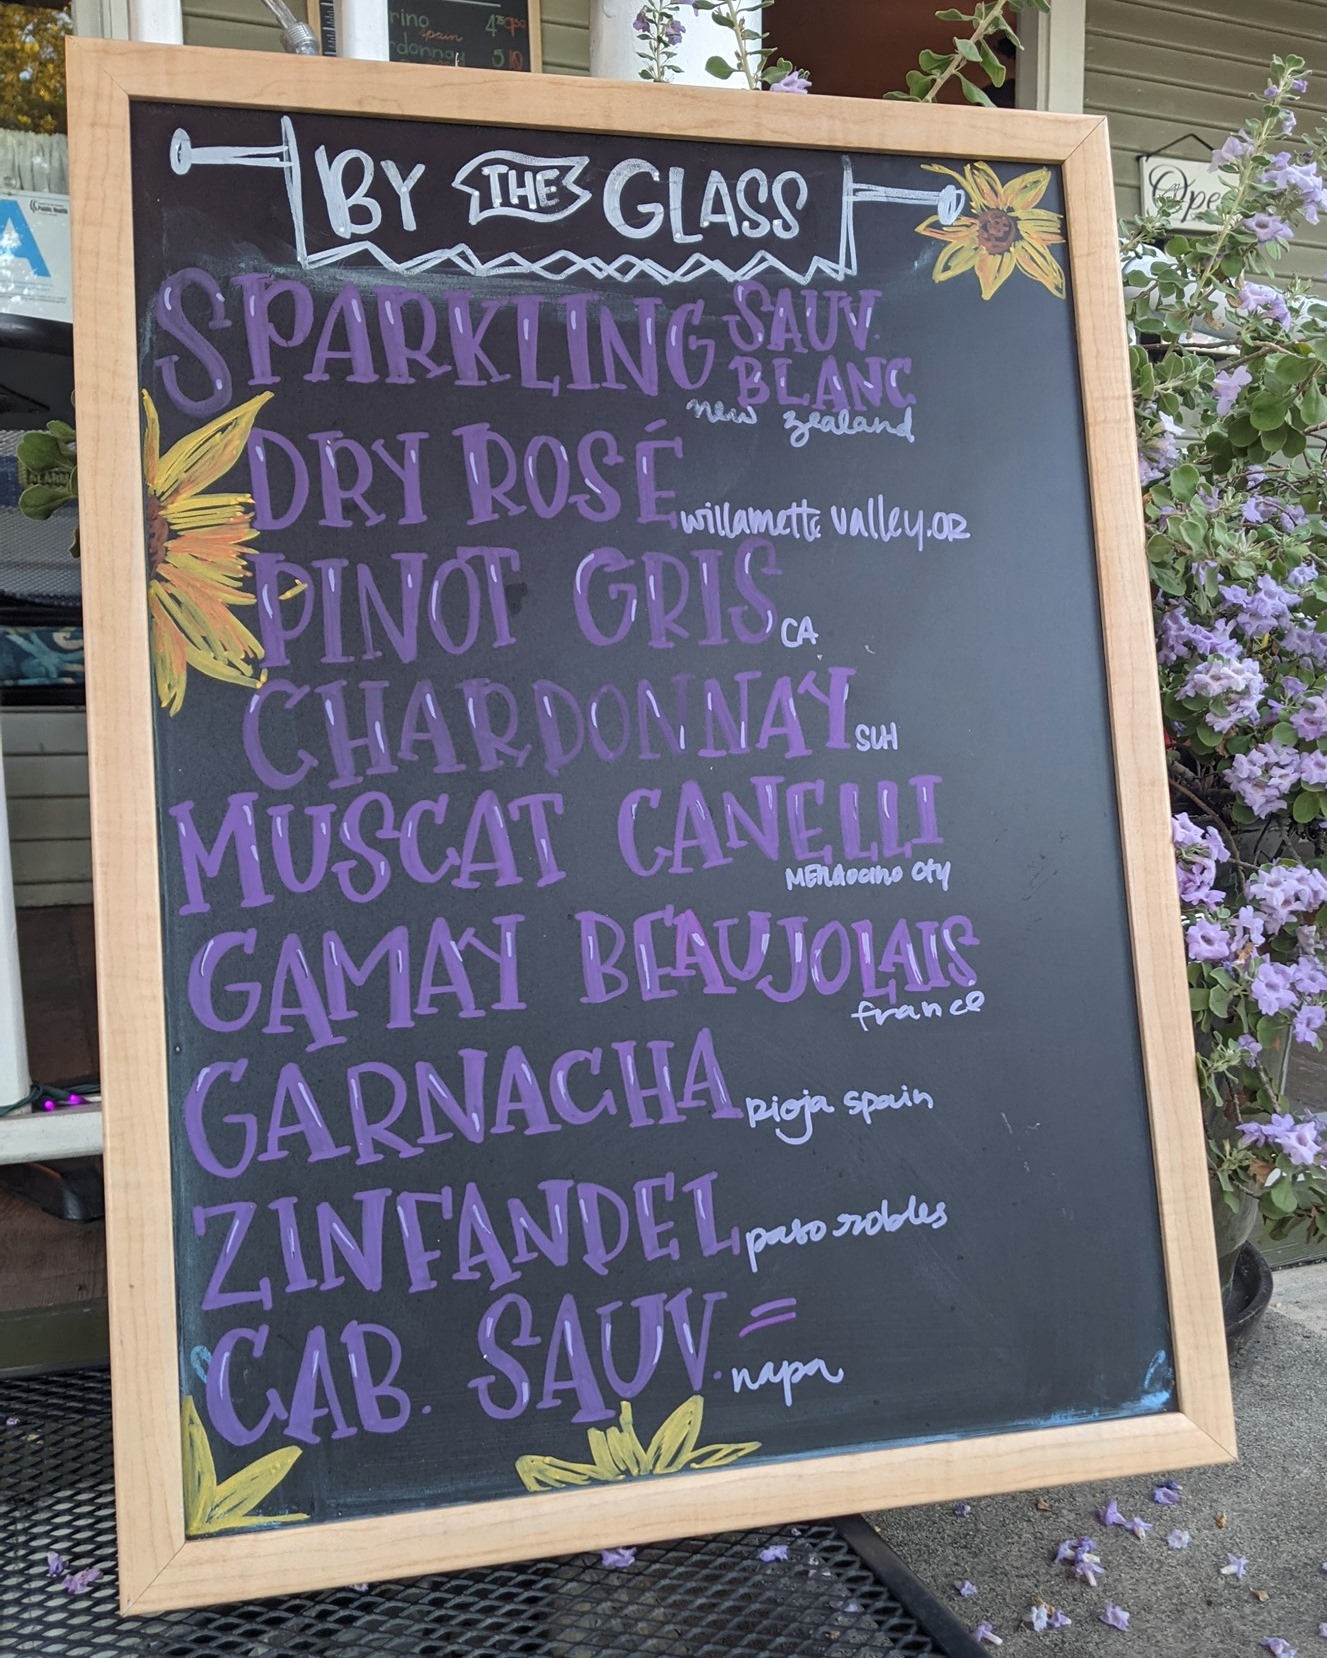 rino 4.75 9.50
spain
rdonnay 5 10
Open
Public Health
A
BY THE GLASS
SPARKLING SAUV. BLANC
new zealand
DRY ROSÉ willamette valley.OR
PINOT GRIS CA
CHARDONNAY SLH
MUSCAT CANELLI
MENdocino cty
GAMAY BEAUJOLAIS
france
GARNACHA Rioja spain
ZINFANDEL paso robles
CAB. SAUV. napa